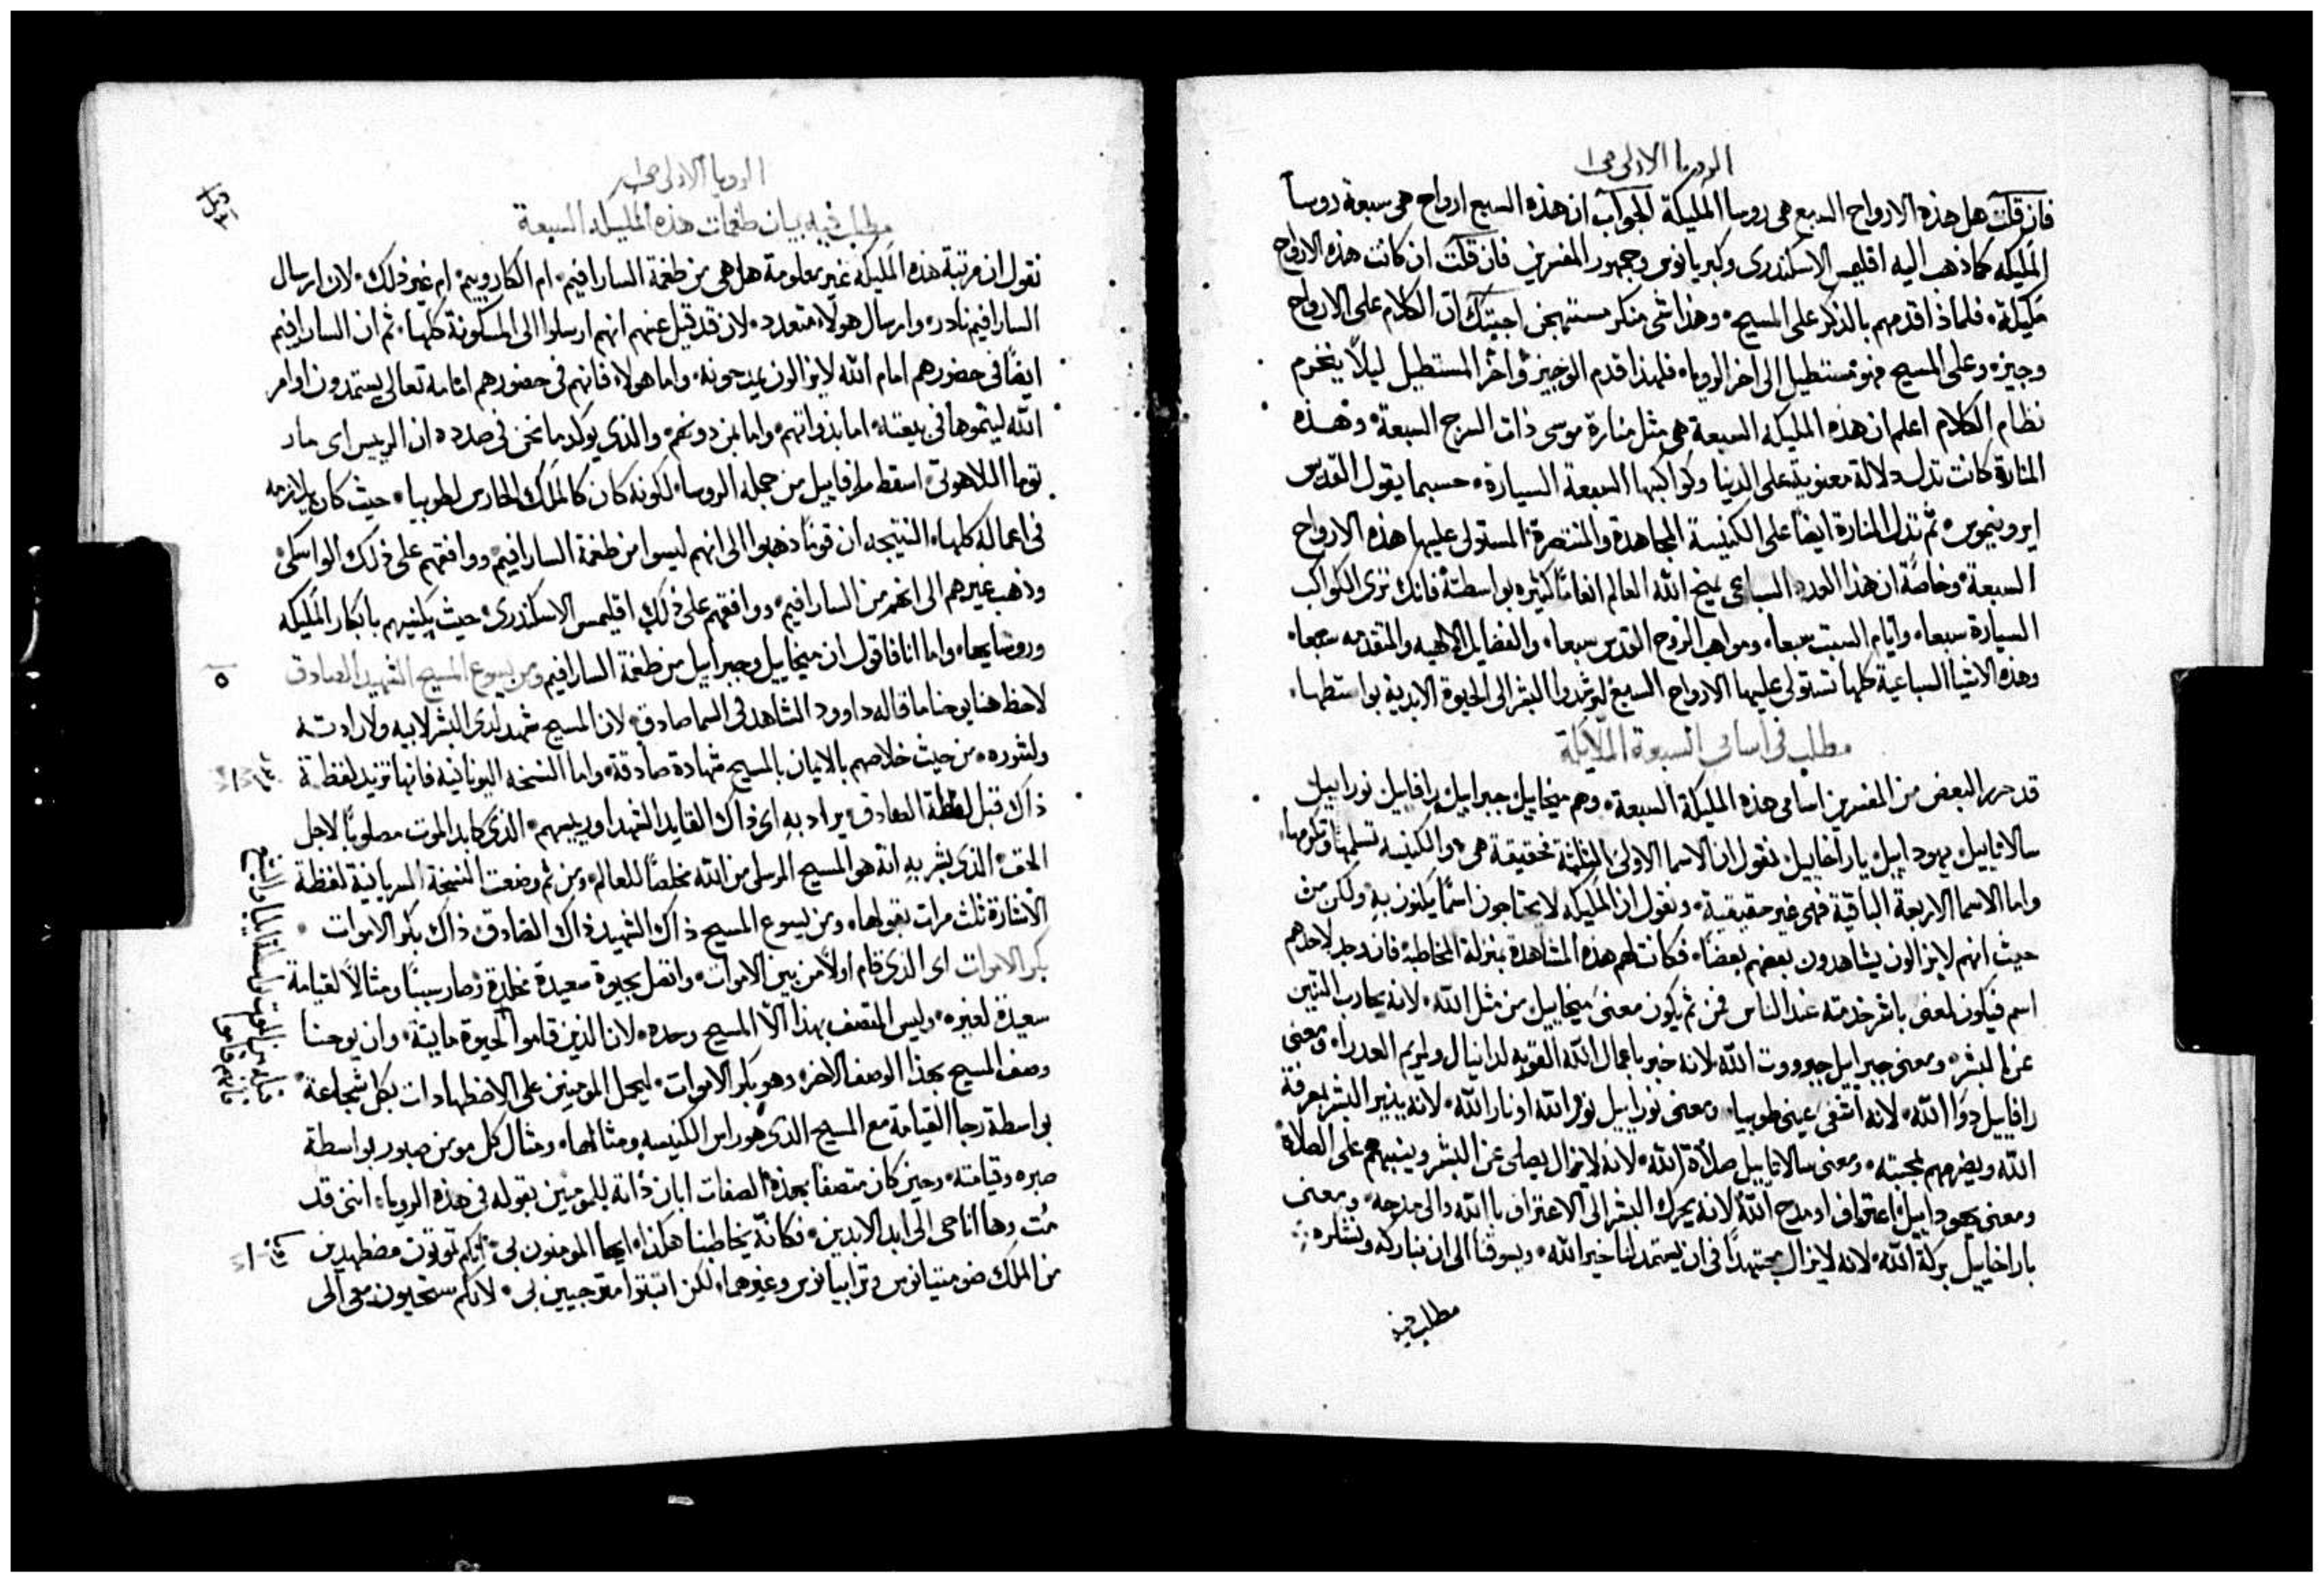 الرويا الاولى صح ا
فان قلت هل هذه الارواح السبع هى روسا المليكة الجواب ان هذه السبع ارواح هى سبعة روسا
المليكه كما ذهب اليه اقليمس الاسكندرى وكبريانوس وجمهور المفسرين فان قلت ان كانت هذه الارواح
مليكة، فلماذا قدمهم بالذكر على المسيح، وهذا شى منكر مستهجن اجبتك ان الكلام على الارواح
وجيزه وعلى المسيح فهو مستطيل الى اخر الرويا، فلهذا قدم الوجيز واخر المستطيل ليلا ينخرم
نظام الكلام اعلم ان هذه المليكه السبعة هى مثل منارة موسى ذات السرج السبعة، وهذه
المنارة كانت تدل دلالة معنوية على الدنيا وكواكبها السبعة السيارة، حسبما يقول القديس
ايرونيموس، ثم تدل المنارة ايضا على الكنيسة المجاهدة والمنتصرة المستولى عليها هذه الارواح
السبعة، وخاصة ان هذا العدد السباعى يمنح الله العالم انعاما كثيره بواسطته فانك ترى الكواكب
السيارة سبعا، وايام السبت سبعا، ومواهب الروح القدس سبعا، والفضايل الالهيه والمتقدمه سبعا،
وهذه الاشيا السباعية كلها تستولى عليها الارواح السبع ليرشدوا البشر الى الحيوة الابدية بواسطتها،
مطلب فى اسامى السبعة الملايكة
قد حرر البعض من المفسرين اسامى هذه المليكة السبعة، وهم ميخاييل جبراييل رافاييل نوراييل
سالاتاييل يهوداييل باراخاييل نقول ان الاسما الاولى الثلثة حقيقة هى، والكنيسه تسلمها وتكرمها،
واما الاسما الاربعة الباقية فهى غير حقيقية، ونقول ان المليكه لا يحتاجون اسما يكنون به، ولكن من
حيث انهم لايزالون يشاهدون بعضهم بعضا، فكانت لهم هذه المشاهدة بمنزلة المخاطبة فان وجد لاحدهم
اسم فيكون لمعنى باشر خدمته عند الناس فمن ثم يكون معنى ميخاييل من مثل الله، لانه يحارب التنين
عن البشر، ومعنى جبراييل جبرووت الله لانه خبر باعمال الله القويه لدانيال ولمريم العدرا، ومعنى
رافاييل دوا الله، لانه اشفى عينى طوبيا، ومعنى نوراييل نور الله او نار الله، لانه ينير البشر بمعرفة
الله ويضرمهم بمحبته، ومعنى سالاتاييل صلاة الله، لانه لايزال يصلى عن البشر وينبههم على الصلاة
ومعنى يهوداييل اعتراف او مدح الله لانه يحرك البشر الى الاعتراف بالله والى مدحه، ومعنى
باراخاييل بركة الله، لانه لايزال مجتهدا فى ان يستمد لنا خير الله، ويسوقنا الى ان نباركه ونشكره
مطلب فيه
الرويا الاولى صح ا
مطلب فيه بيان طغمات هذه المليكه السبعة
نقول ان مرتبة هذه المليكه غير معلومة هل هى من طغمة السارافيم، ام الكاروبيم، ام غير ذلك، لان ارسال
السارافيم نادر، وارسال هولاء متعدد، لان قد قيل عنهم انهم ارسلوا الى المسكونة كلها، ثم ان السارافيم
ايضا فى حضورهم امام الله لايزالون يمدحونه، واما هولاء فانهم فى حضورهم امامه تعالى يستمدون اوامر
الله ليتموها فى بيعته، اما بذواتهم، واما بمن دونهم، والذى يوكد ما نحن فى صدده ان الرييس اى مار
توما اللاهوتى اسقط رافاييل من جملة الروسا، لكونه كان كالملك الحارس لطوبيا، حيث كان يلازمه
فى اعماله كلها، النتيجه ان قوما ذهبوا الى انهم ليسوا من طغمة السارافيم، ووافقهم على ذلك
وذهب غيرهم الى انهم من السارافيم، ووافقهم على ذلك اقليمس الاسكندرى، حيث يكنيهم بابكار المليكه
وروسايها، واما انا فاقول ان ميخاييل وجبراييل من طغمة السارافيم ومن يسوع المسيح الشهيد الصادق
٥
لاحظ هنا يوحنا ما قاله داوود الشاهد فى السما صادق، لان المسيح شهد لدى البشر لابيه ولارادته
ولشوره، من حيث خلاصهم بالايمان بالمسيح شهادة صادقة، واما النسخه اليونانيه فانها تزيد لفظة
ذاك قبل لفظة الصادق، يراد به اى ذاك القايد الشهدا ورييسهم، الذى كابد الموت مصلوبا لاجل
الحق، الذى بشر به انه هو المسيح المرسل من الله مخلصا للعالم، ومن ثم وضعت النسخة السريانية لفظة
الاشارة ثلث مرات بقولها، ومن يسوع المسيح ذاك الشهيد ذاك الصادق ذاك بكر الاموات،
بكر الاموات اى الذى قام اولا من بين الاموات، واتصل بحيوة سعيدة مخلدة، وصار سببا ومثالا لقيامة
سعيدة لغيره، وليس المتصف بهذا الا المسيح وحده، لان الذين قاموا الحيوة مايتة، وان يوحنا
وصف المسيح بهذا الوصف الاخر، وهو بكر الاموات، ليحمل المومنين على الاضطهادات بكل شجاعة،
بواسطة رجا القيامة مع المسيح الذى هو راس الكنيسه ومثالها، ومثال كل مومن صبور بواسطة
صبره وقيامته، وحين كان متصفا بهذه الصفات ابان ذاته للمومنين بقوله فى هذه الرويا، اننى قد
مت وها انا حى الى ابد الابدين، فكانه يخاطبنا هكذا، ايها المومنون بى، انكم تموتون مضطهدين
من الملك ضومتيانوس وترابيانوس وغيرهما، لكن اثبتوا مترجيين بى، لانكم ستحيون معى الى